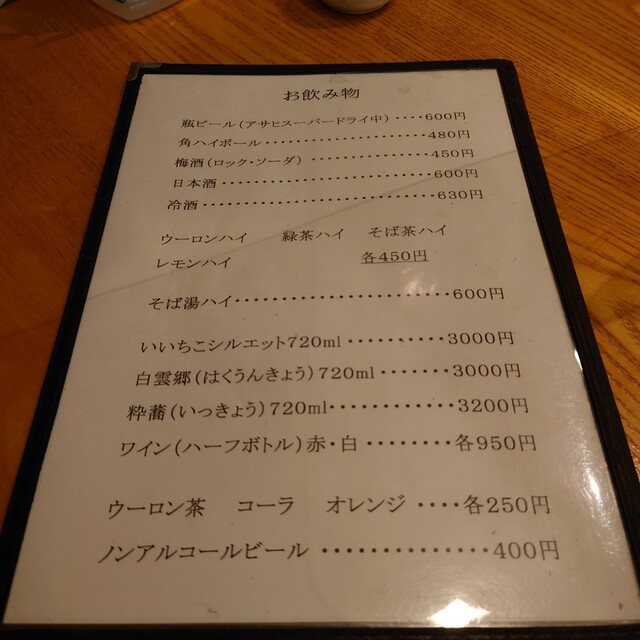 お飲み物
瓶ビール(アサヒスーパードライ中)････600円
角ハイボール･･････････････････････480円
梅酒(ロック・ソーダ) ･･･････････････450円
日本酒････････････････････････････600円
冷酒･･････････････････････････････630円
ウーロンハイ 緑茶ハイ そば茶ハイ
レモンハイ 各450円
そば湯ハイ････････････････････････600円
いいちこシルエット720ml ･･････････3000円
白雲郷(はくうんきょう)720ml･･･････3000円
粋蕎(いっきょう)720ml････････････3200円
ワイン(ハーフボトル)赤・白 ････････各950円
ウーロン茶 コーラ オレンジ ････各250円
ノンアルコールビール ･･･････････････400円